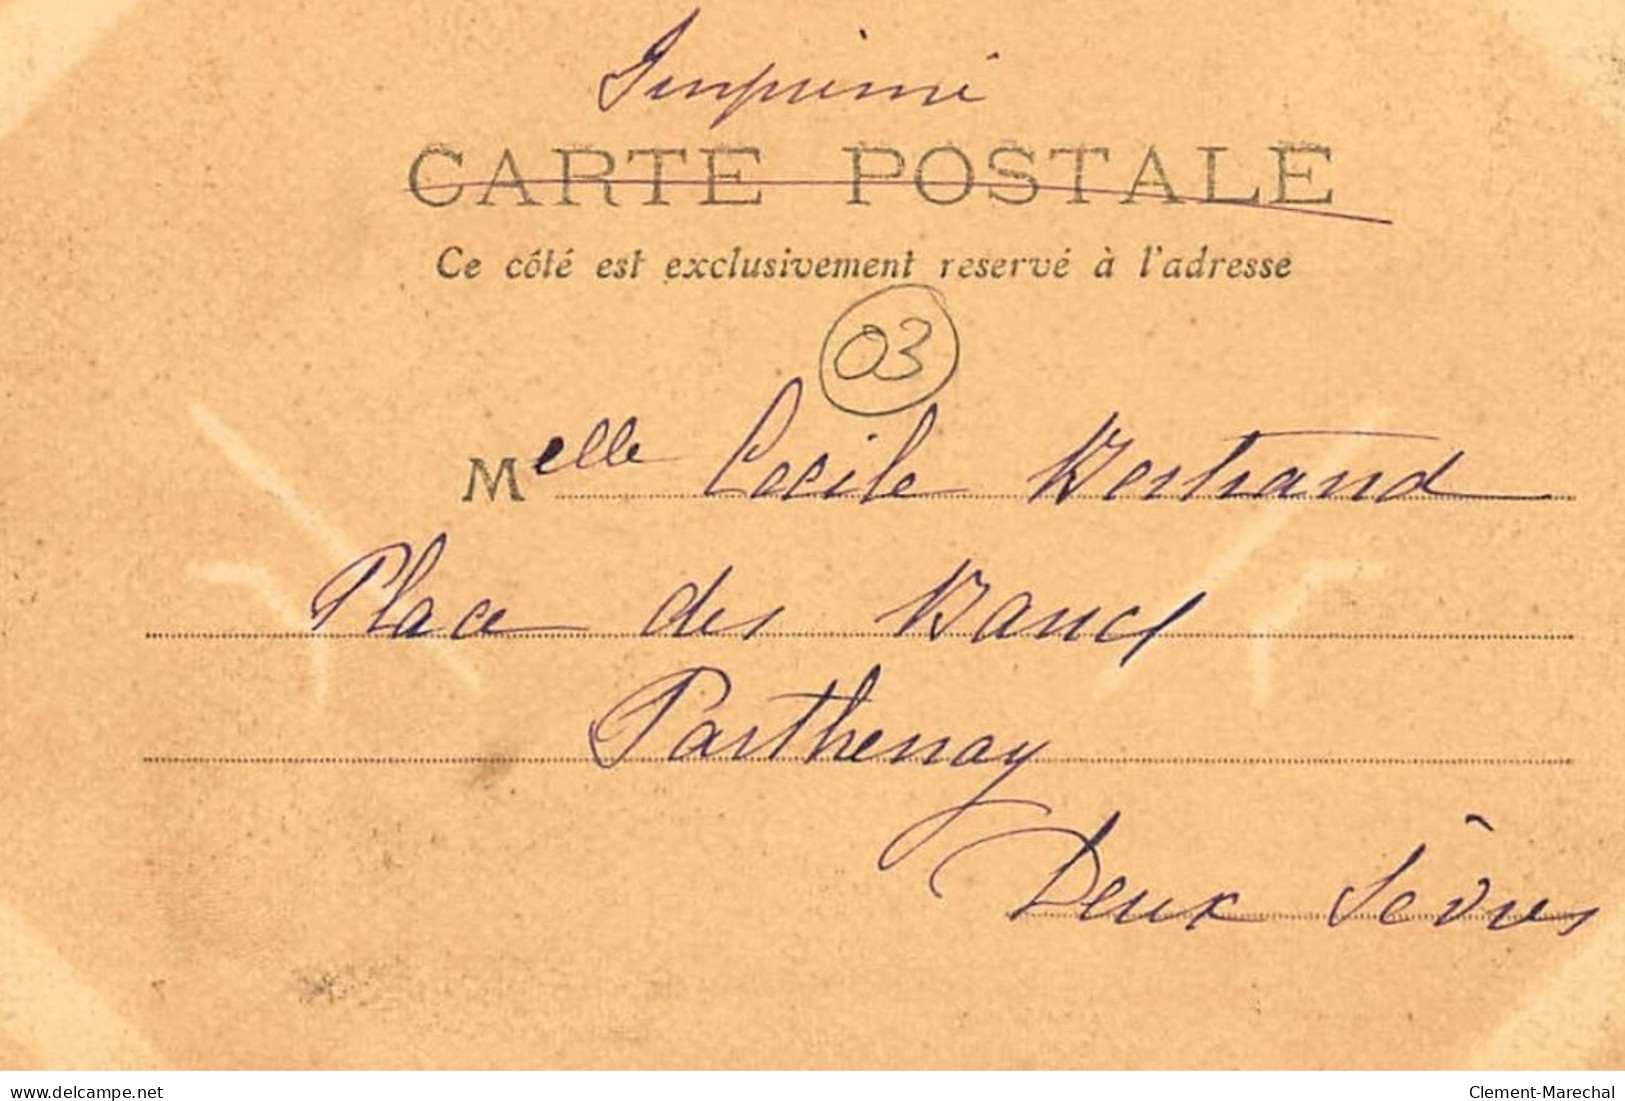 Imprimé
CARTE POSTALE
Ce côté est exclusivement reservé à l'adresse
03
Melle Cecile Bertrand
Place des Bancs
Parthenay
Deux Sèvres
delcampe.net
Clement-Marechal